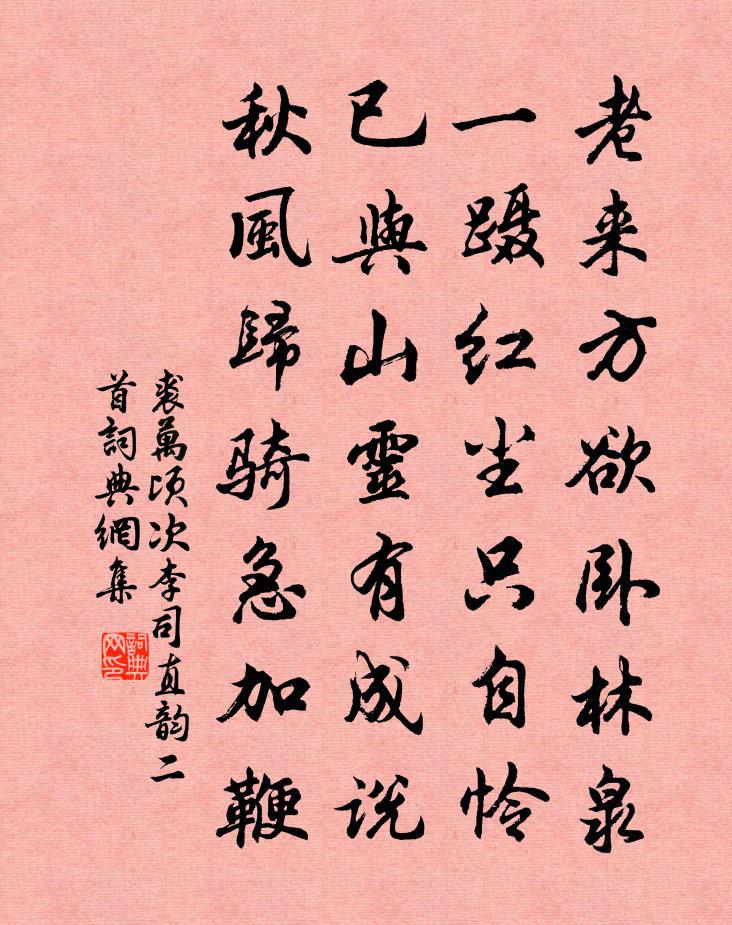 老来方欲卧林泉
一蹑红尘只自怜
已與山靈有成说
秋風歸骑急加鞭
裘萬顷次李司直韵二
首詞典網集
詞典
网印